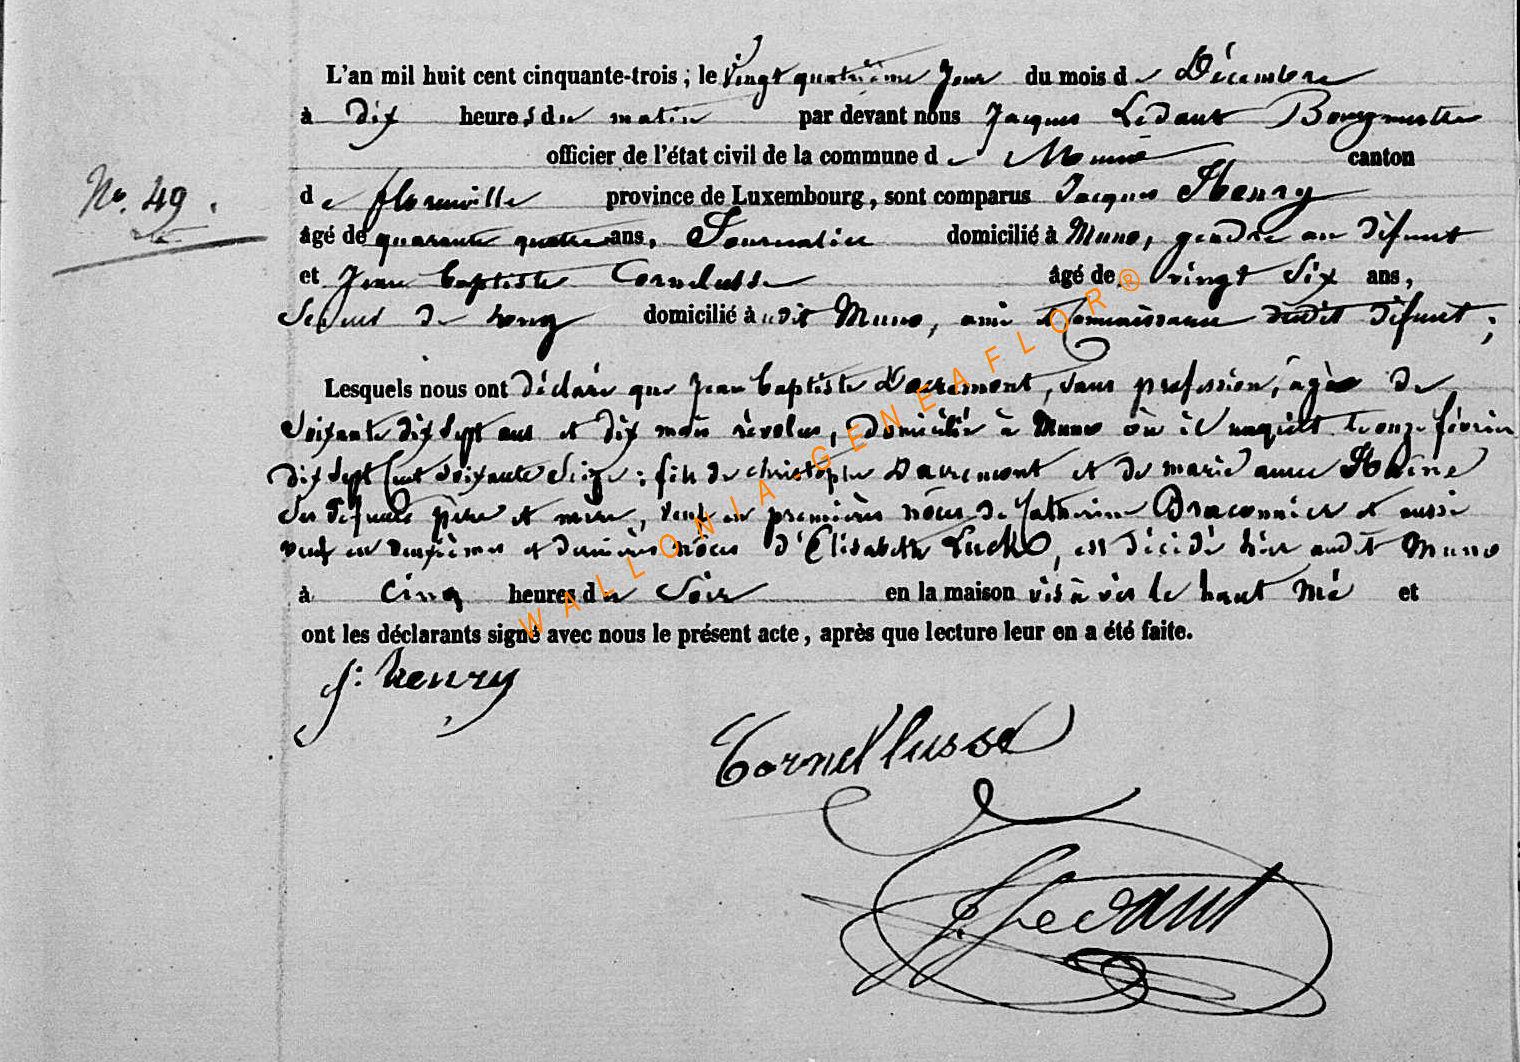 L'an mil huit cent cinquante-trois ; le vingt quatrième jour du mois de Décembre
à dix heures du matin par devant nous Jacques Ledant Bourgmestre
officier de l'état civil de la commune de Muno canton
No. 49.
de florenville province de Luxembourg, sont comparus Jacques Henry
âgé de quarante quatre ans, Journalier domicilié à Muno, gendre au défunt
et Jean baptiste Cornelusse âgé de vingt Six ans,
Scieur de long domicilié audit Muno, ami et connaissance dudit défunt ;
Lesquels nous ont déclaré que Jean baptiste Dacremont, sans profession, âgée de
Soixante dix Sept ans et dix mois révolus, Domicilié à Muno où il naquit le onze février
dix Sept Cent Soixante Seize ; fils de christophe Dacremont et de marie anne
Ses défunts père et mère, veuf en premières nôces de Catherine Braconnier et aussi
veuf en deuxièmes et dernières nôces d'Elisabeth, est décidé hier audit Muno
à cinq heures du Soir en la maison vis à vis le haut et
ont les déclarants signé avec nous le présent acte, après que lecture leur en a été faite.
J: henry
Cornellusse
J. Ledant
WALLONIA-GENEAFLOR®